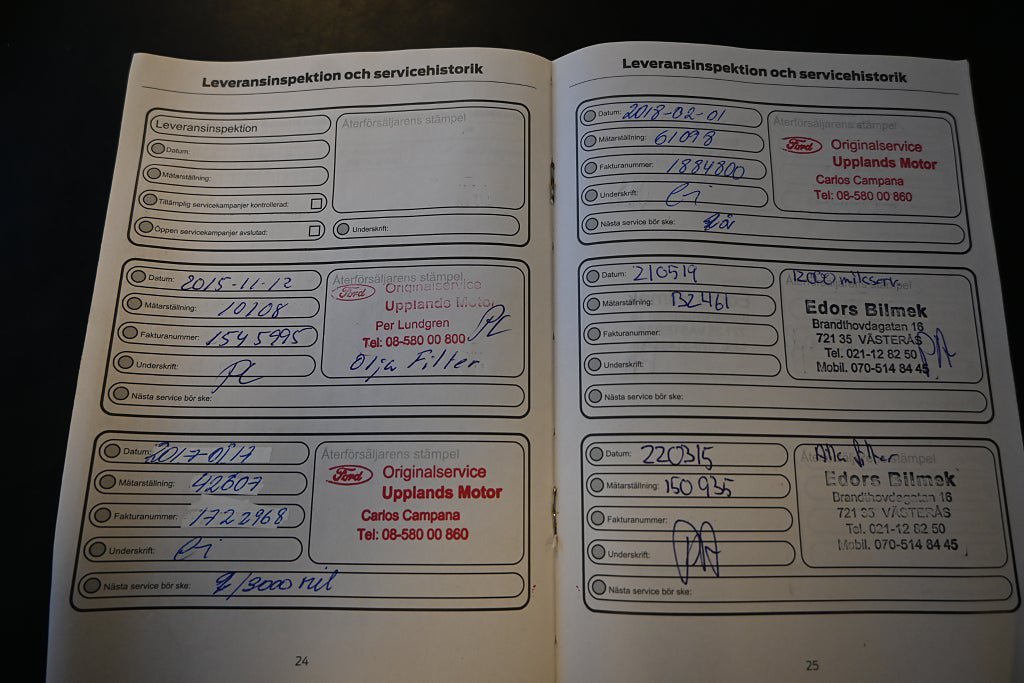 Leveransinspektion och servicehistorik
Leveransinspektion
Återförsäljarens stämpel
Datum:
Mätarställning:
Tillämplig servicekampanjer kontrollerad:
Öppen servicekampanjer avslutad:
Underskrift:
Datum: 2015-11-12
Mätarställning: 10108
Fakturanummer: 1545995
Underskrift: PL
Nästa service bör ske:
Återförsäljarens stämpel
Ford Originalservice
Upplands Motor
Per Lundgren
Tel: 08-580 00 800
PL
Olja Filter
Datum: 2017-0117
Mätarställning: 42607
Fakturanummer: 1722968
Underskrift:
Nästa service bör ske: /3000 mil
Återförsäljarens stämpel
Ford Originalservice
Upplands Motor
Carlos Campana
Tel: 08-580 00 860
24
Leveransinspektion och servicehistorik
Datum: 2018-02-01
Mätarställning: 61098
Fakturanummer: 1884800
Underskrift:
Nästa service bör ske: år
Återförsäljarens stämpel
Ford Originalservice
Upplands Motor
Carlos Campana
Tel: 08-580 00 860
Datum: 210519
Mätarställning: 132461
Fakturanummer:
Underskrift:
Nästa service bör ske:
12000 milserv.
Edors Bilmek
Brandthovdagatan 16
721 35 VÄSTERÅS
Tel. 021-12 82 50
Mobil. 070-514 84 45
PA
Datum: 220315
Mätarställning: 150935
Fakturanummer:
Underskrift: PA
Nästa service bör ske:
Återförsäljarens stämpel
Alla filter
Edors Bilmek
Brandthovdagatan 16
721 35 VÄSTERÅS
Tel. 021-12 82 50
Mobil. 070-514 84 45
25